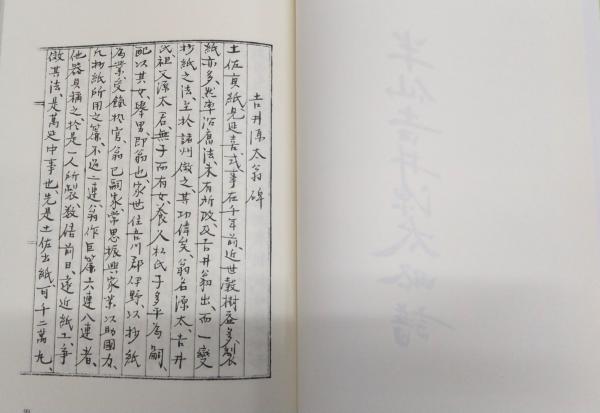 吉井源太翁碑
土佐貢紙見延喜式事在千年前、近世穀樹益多、製
紙亦多、然率沿舊法、未有所改、及吉井翁出、而一變
抄紙之法、至於諸州傚之、其功偉矣、翁名源太、吉井
氏、祖父源太君、無子而有女、養人松氏子多平為嗣、
配以其女、舉男、即翁也、家世住吾川郡伊野、以抄紙
為業、受錄於官、翁已嗣家、常思振興家業、以助國力、
凡抄紙所用之簾、不過二連、翁作巨簾六連八連者、
他器具稱之、於是一人所製、数倍前日、遠近紙工、爭
傚其法、是萬延中事也、先是土佐出紙、可千二萬丸、
半仙吉井源太略譜